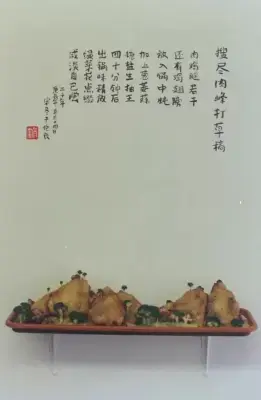 搜尽肉峰打草稿
肉鸡腿若干
还有鸡翅膀
放入锅中炖
加上葱
盐生抽王
四十分钟后
出锅味精放
绿菜花点缀
咸淡自己尝
二十年